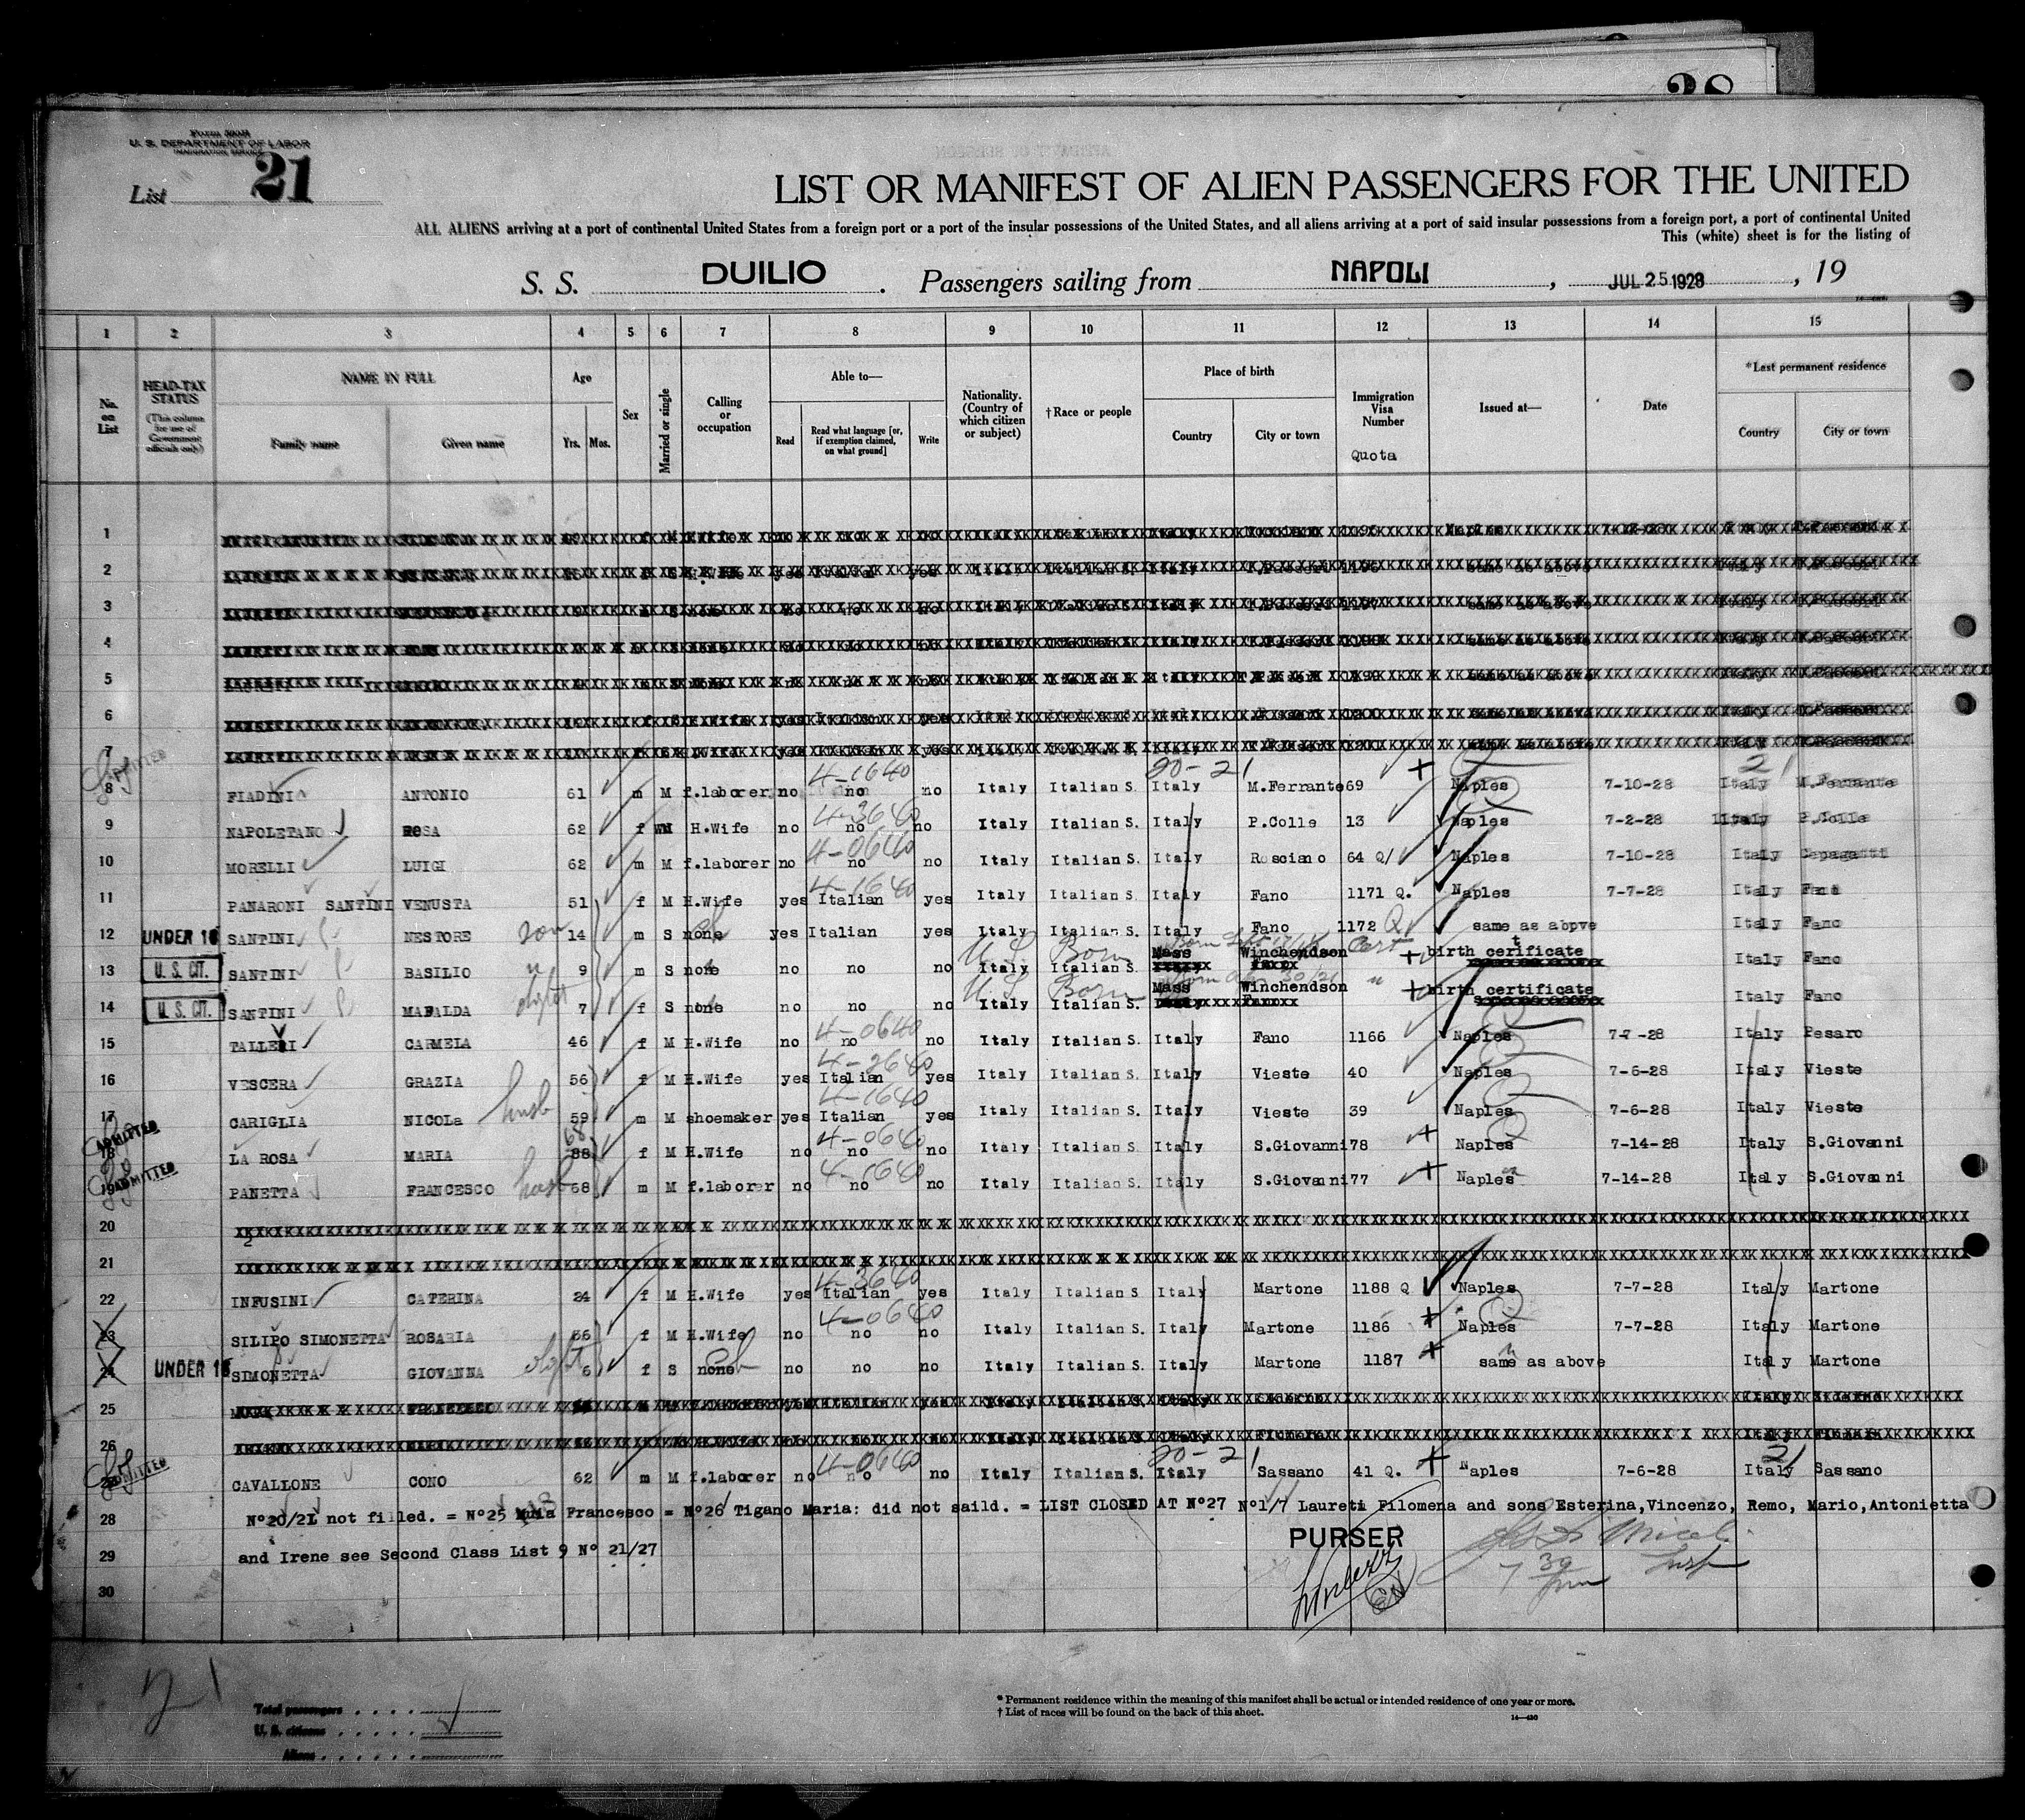 38
Form 500A
U. S. DEPARTMENT OF LABOR
IMMIGRATION SERVICE
List 21
LIST OR MANIFEST OF ALIEN PASSENGERS FOR THE UNITED
ALL ALIENS arriving at a port of continental United States from a foreign port or a port of the insular possessions of the United States, and all aliens arriving at a port of said insular possessions from a foreign port, a port of continental United
This (white) sheet is for the listing of
S. S. DUILIO. Passengers sailing from NAPOLI, JUL 25 1928, 19
1 2 3 4 5 6 7 8 9 10 11 12 13 14 15
No. on List HEAD-TAX STATUS (This column for use of Government officials only) NAME IN FULL Family name Given name Age Yrs. Mos. Sex Married or single Calling or occupation Able to— Read Read what language [or, if exemption claimed, on what ground] Write Nationality. (Country of which citizen or subject) †Race or people Place of birth Country City or town Immigration Visa Number Quota Issued at— Date *Last permanent residence Country City or town
1
2
3
4
5
6
7
4-1640 20-21 21
8 ADMITTED FIADINI ANTONIO 61 m M f.laborer no no no Italy Italian S. Italy M.Ferrante 69 Naples 7-10-28 Italy M.Ferrante
4-3640
9 NAPOLETANO ROSA 62 f M H.Wife no no no Italy Italian S. Italy P.Colle 13 Naples 7-2-28 Italy P.Colle
4-0640
10 MORELLI LUIGI 62 m M f.laborer no no no Italy Italian S. Italy Rosciano 64 Q/ Naples 7-10-28 Italy
4-1640
11 PANARONI SANTINI VENUSTA 51 f M H.Wife yes Italian yes Italy Italian S. Italy Fano 1171 Q. Naples 7-7-28 Italy Fano
12 UNDER 16 SANTINI NESTORE son 14 m S none yes Italian yes Italy Italian S. Italy Fano 1172 Q same as abpve Italy Fano
U.S. Born Mass Winchendson Cert birth certificate
13 U. S. CIT. SANTINI BASILIO " 9 m S none no no no Italy Italian S. Italy Fano
U.S. Born Mass Winchendson " birth certificate
14 U. S. CIT. SANTINI MAFALDA 7 f S none no no no Italy Italian S. Italy Fano
4-0640
15 TALLERI CARMELA 46 f M H.Wife no no no Italy Italian S. Italy Fano 1166 Naples 7-7-28 Italy Pesaro
4-2640
16 VESCERA GRAZIA 56 f M H.Wife yes Italian yes Italy Italian S. Italy Vieste 40 Naples 7-6-28 Italy Vieste
4-1640
17 CARIGLIA NICOLa husb 59 m M shoemaker yes Italian yes Italy Italian S. Italy Vieste 39 Naples 7-6-28 Italy Vieste
68 4-0640
18 ADMITTED LA ROSA MARIA f M H.Wife no no no Italy Italian S. Italy S.Giovanni 78 Naples 7-14-28 Italy S.Giovanni
4-1640
19 ADMITTED PANETTA FRANCESCO husb 68 m M f.laborer no no no Italy Italian S. Italy S.Giovanni 77 Naples 7-14-28 Italy S.Giovanni
20
21
4-3640
22 INFUSINI CATERINA 24 f M H.Wife yes Italian yes Italy Italian S Italy Martone 1188 Q Naples 7-7-28 Italy Martone
4-0640
23 SILIPO SIMONETTA ROSARIA 56 f M H.Wife no no no Italy Italian S. Italy Martone 1186 Naples 7-7-28 Italy Martone
24 UNDER 16 SIMONETTA GIOVANNA 6 f S none no no no Italy Italian S. Italy Martone 1187 same as above Italy Martone
25
26
4-0640 20-21 21
ADMITTED CAVALLONE CONO 62 m M f.laborer no no no Italy Italian S. Italy Sassano 41 Q. Naples 7-6-28 Italy Sassano
28 N°20/21 not filled. = N°25 Muia Francesco = N°26 Tigano Maria: did not saild. = LIST CLOSED AT N°27 N°1/7 Laureti Filomena and sons Esterina,Vincenzo, Remo, Mario,Antonietta
29 and Irene see Second Class List 9 N° 21/27
PURSER
30
21
Total passengers
U. S. citizens
Aliens
* Permanent residence within the meaning of this manifest shall be actual or intended residence of one year or more.
† List of races will be found on the back of this sheet.
14—430